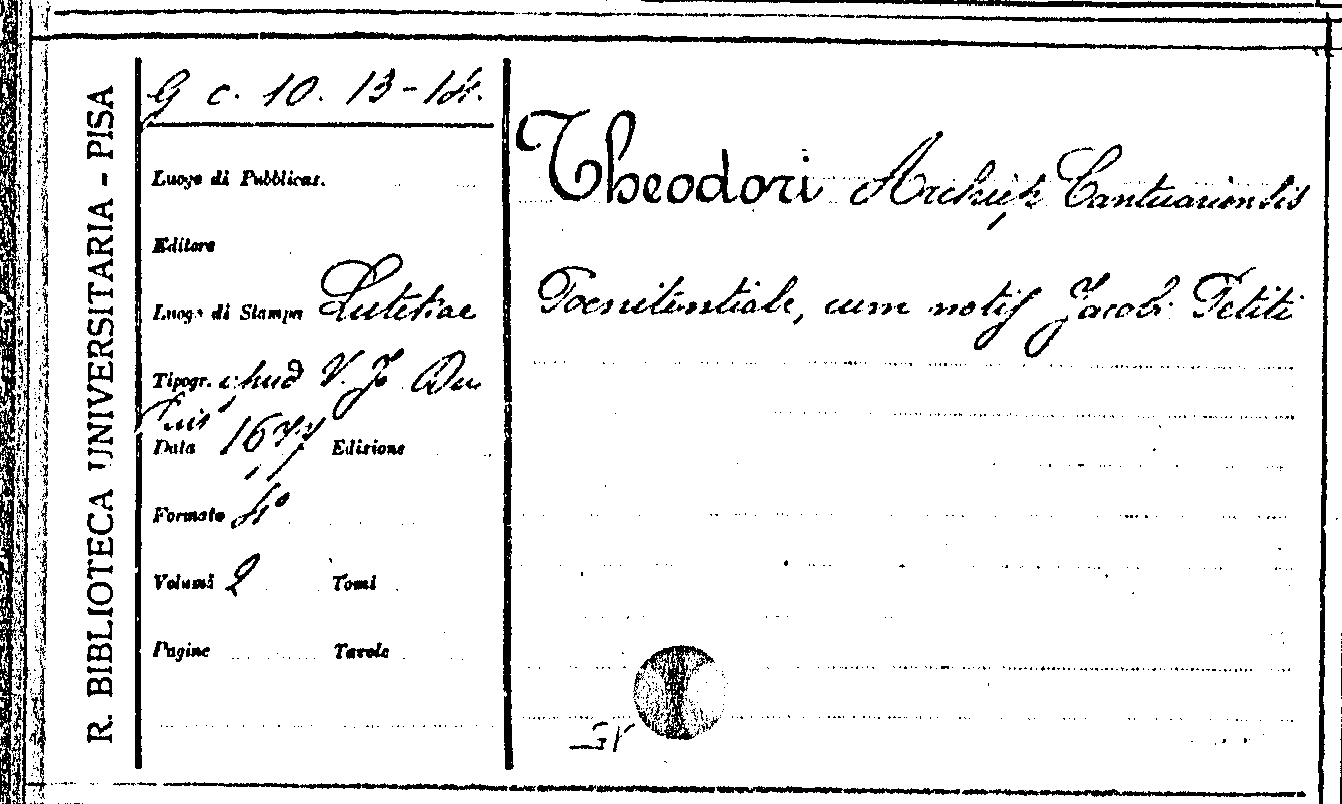 R. BIBLIOTECA UNIVERSITARIA - PISA
G c. 10. 13-14.
Luogo di Pubblicaz.
Editore
Luogo di Stampa Lutetiae
Tipogr. apud V. J. Du
Puis
Data 1677 Edizione
Formato 4°
Volumi 2 Tomi
Pagine Tavole
Theodori Archiep. Cantuariensis
Poenitentiale, cum notis Jacobi Petiti